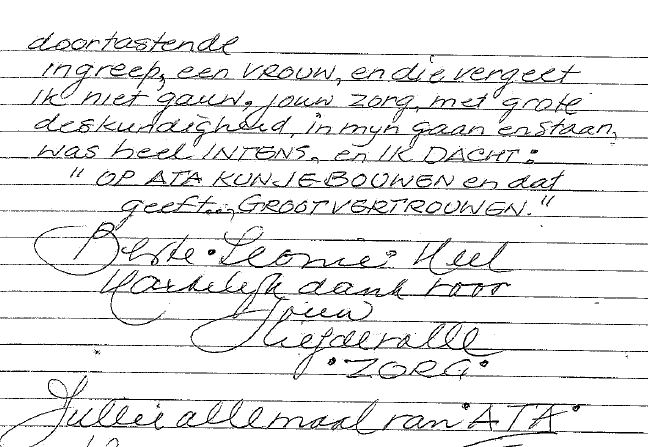 doortastende
ingreep, een VROUW, en die vergeet
ik niet gauw, jouw zorg, met grote
deskundigheid, in mijn gaan en staan,
was heel INTENS, en IK DACHT:
" OP ATA KUN JE BOUWEN en dat
geeft... GROOT VERTROUWEN."
Beste Leonie: Heel
Hartelijk dank voor
jouw
liefdevolle
"ZORG"
Jullie allemaal van "ATA"